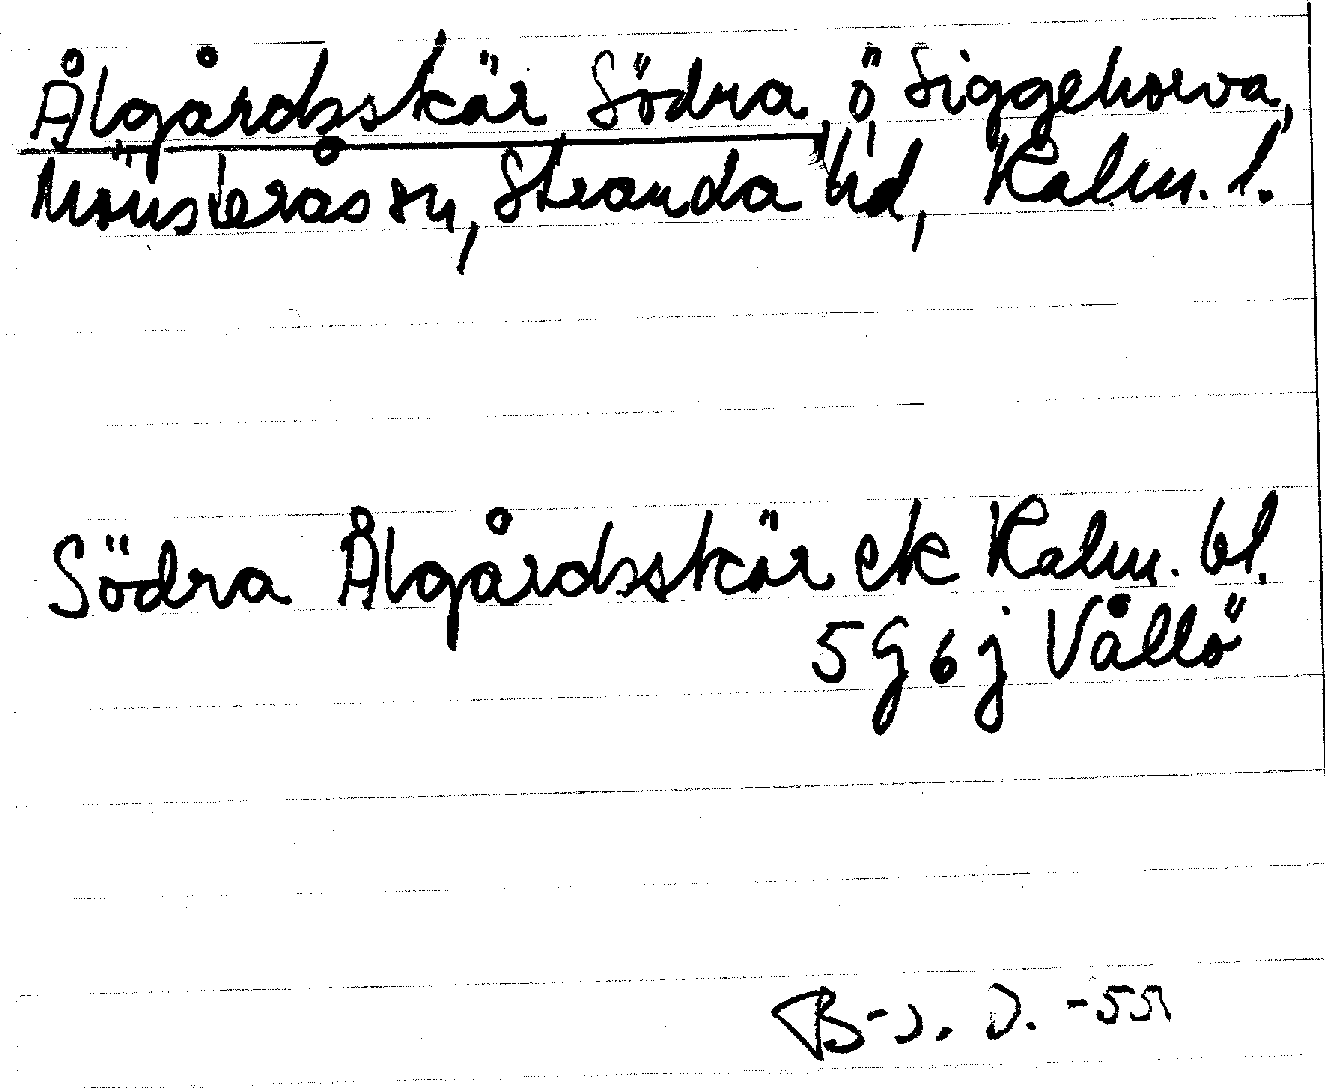 Ålgårdsskär Södra, ö Siggehorva,
Mönsterås sn, Stranda hd, Kalm. l.
Södra Ålgårdsskär ek Kalm. bl.
5G6j Vållö
B-J. D. -55